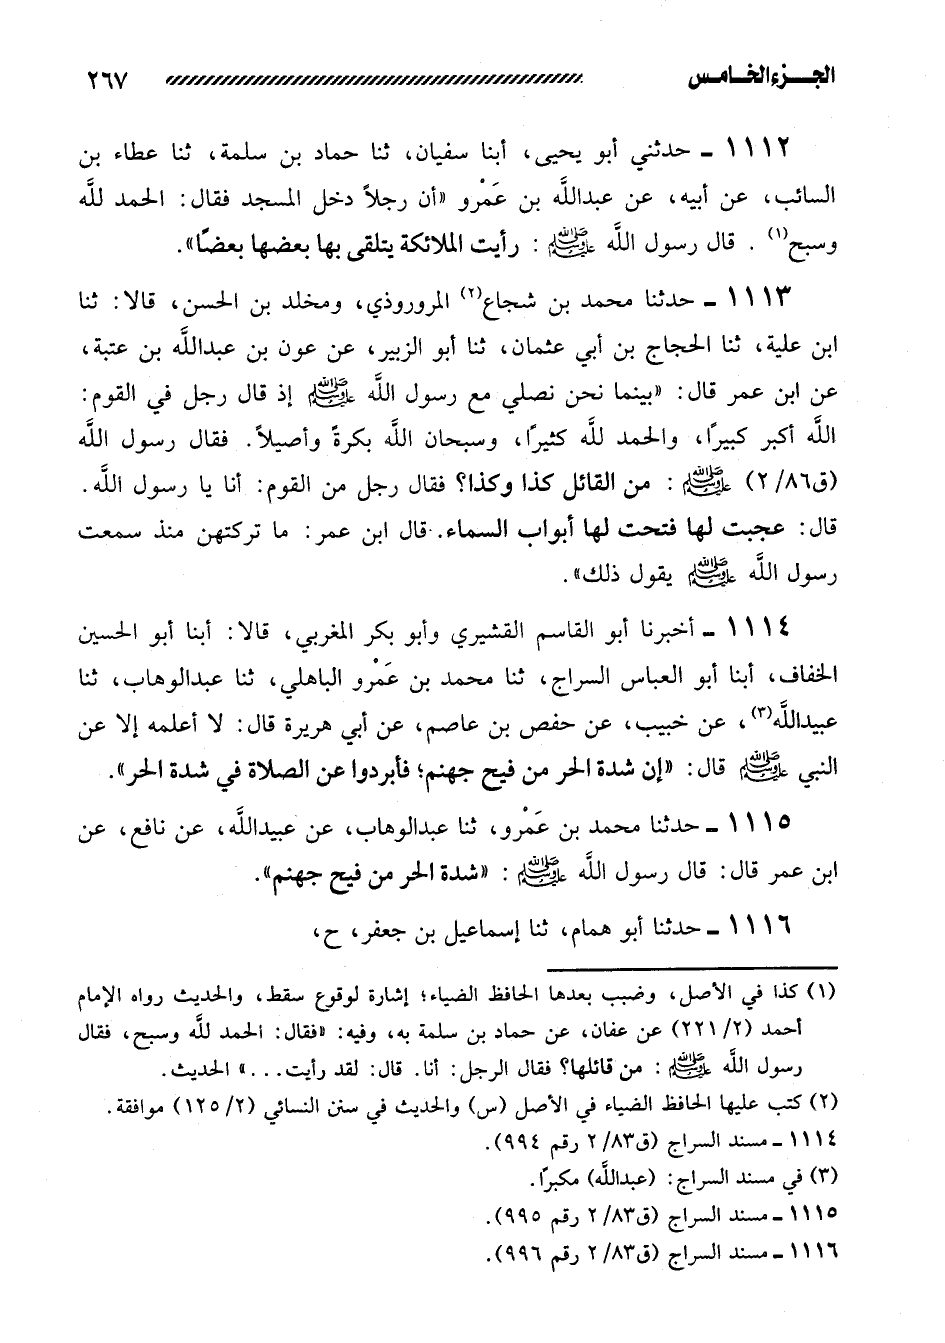 الجزء الخامس ٢٦٧
١١١٢ ـ حدثني أبو يحيى، أبنا سفيان، ثنا حماد بن سلمة، ثنا عطاء بن
السائب، عن أبيه، عن عبداللَّه بن عَمْرو «أن رجلاً دخل المسجد فقال: الحمد للَّه
وسبح(١) . قال رسول اللَّه ﷺ : رأيت الملائكة يتلقى بها بعضها بعضًا».
١١١٣ ـ حدثنا محمد بن شجاع(٢) المروروذي، ومخلد بن الحسن، قالا: ثنا
ابن علية، ثنا الحجاج بن أبي عثمان، ثنا أبو الزبير، عن عون بن عبداللَّه بن عتبة،
عن ابن عمر قال: «بينما نحن نصلي مع رسول اللَّه ﷺ إذ قال رجل في القوم:
اللَّه أكبر كبيرًا، والحمد للَّه كثيرًا، وسبحان اللَّه بكرةً وأصيلاً. فقال رسول اللَّه
(ق٨٦/ ٢) ﷺ : من القائل كذا وكذا؟ فقال رجل من القوم: أنا يا رسول اللَّه.
قال: عجبت لها فتحت لها أبواب السماء. قال ابن عمر: ما تركتهن منذ سمعت
رسول اللَّه ﷺ يقول ذلك».
١١١٤ ـ أخبرنا أبو القاسم القشيري وأبو بكر المغربي، قالا: أبنا أبو الحسين
الخفاف، أبنا أبو العباس السراج، ثنا محمد بن عَمْرو الباهلي، ثنا عبدالوهاب، ثنا
عبيداللَّه(٣)، عن خبيب، عن حفص بن عاصم، عن أبي هريرة قال: لا أعلمه إلا عن
النبي ﷺ قال: «إن شدة الحر من فيح جهنم؛ فأبردوا عن الصلاة في شدة الحر».
١١١٥ ـ حدثنا محمد بن عَمْرو، ثنا عبدالوهاب، عن عبيداللَّه، عن نافع، عن
ابن عمر قال: قال رسول اللَّه ﷺ : «شدة الحر من فيح جهنم».
١١١٦ ـ حدثنا أبو همام، ثنا إسماعيل بن جعفر، ح،
(١) كذا في الأصل، وضبب بعدها الحافظ الضياء؛ إشارة لوقوع سقط، والحديث رواه الإمام
أحمد (٢/ ٢٢١) عن عفان، عن حماد بن سلمة به، وفيه: «فقال: الحمد للَّه وسبح، فقال
رسول اللَّه ﷺ : من قائلها؟ فقال الرجل: أنا. قال: لقد رأيت...» الحديث.
(٢) كتب عليها الحافظ الضياء في الأصل (س) والحديث في سنن النسائي (٢/ ١٢٥) موافقة.
١١١٤ ـ مسند السراج (ق٨٣/ ٢ رقم ٩٩٤).
(٣) في مسند السراج: (عبداللَّه) مكبرًا.
١١١٥ ـ مسند السراج (ق٨٣/ ٢ رقم ٩٩٥).
١١١٦ ـ مسند السراج (ق٨٣/ ٢ رقم ٩٩٦).